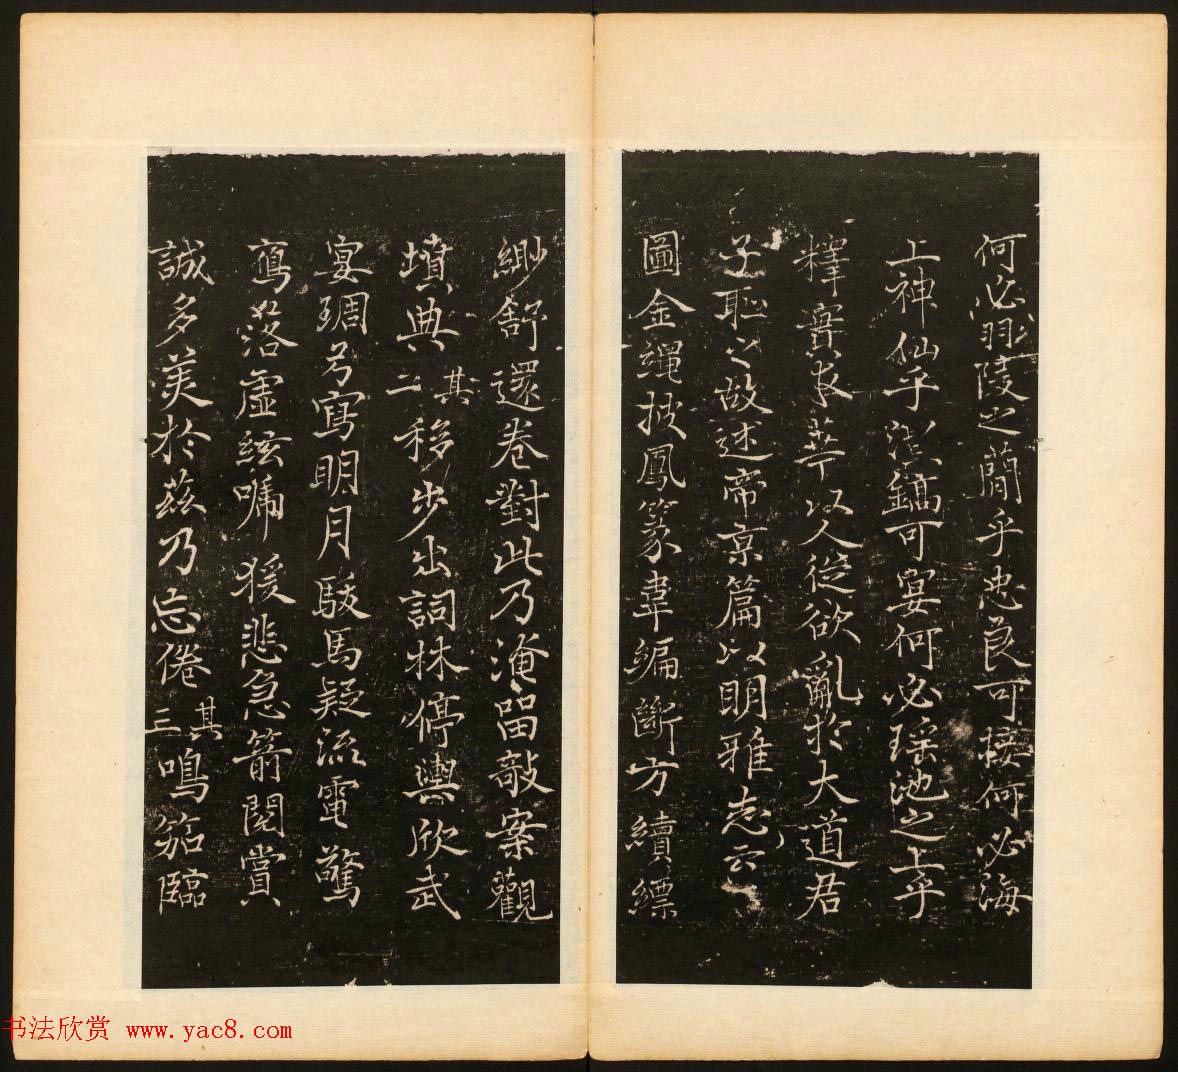 何必羽陵之簡乎忠良可接何必海
上神仙乎灃鎬可宴何必瑤池之上乎
釋實求華以人從欲亂於大道君
子恥之故述帝京篇以明雅志云
圖金繩披鳳篆韋編斷方續縹
緲舒還卷對此乃淹留敧案觀
墳典其二移步出詞林停輿欣武
宴琱弓寫明月駿馬疑流電驚
鴈落虛絃嘯猨悲急箭閱賞
誠多美於茲乃忘倦其三鳴笳臨
书法欣赏 www.yac8.com